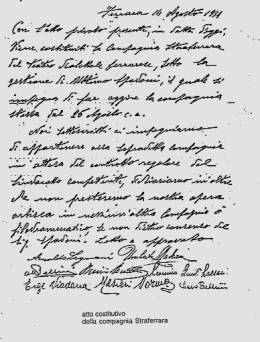 Ferrara 14 Agosto 1931
Con l'atto privato presente, in data d'oggi,
viene costituita la Compagnia Straferrara
del Teatro Dialettale ferrarese, sotto la
gestione di Ultimo Spadoni, il quale si
impegna di far agire la compagnia
stessa dal 26 Agosto c. a.
Noi sottoscritti ci impegniamo
di appartenere alla sopradetta compagnia
in attesa del contratto regolare del
Sindacato competente, dichiariamo inoltre
che non presteremo la nostra opera
artistica in nessun'altra Compagnia o
filodrammatica, se non dietro consenso del
Sig. Spadoni. Letto e approvato
Erge Viadana
atto costitutivo
della compagnia Straferrara